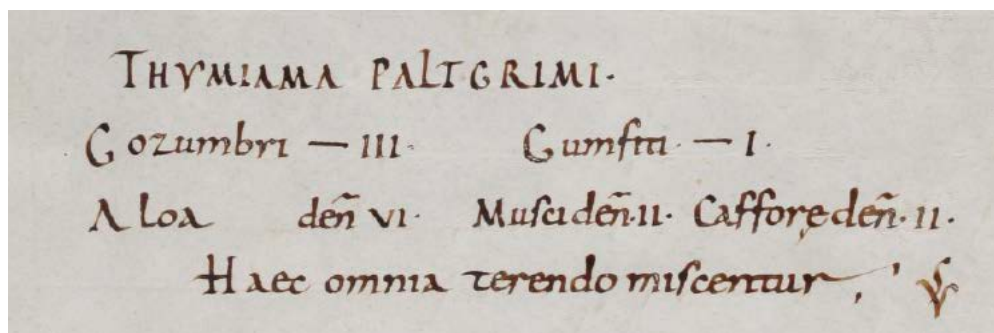 THYMIAMA PALTGRIMI·
Gozumbri — III· Gumfiti· — I·
Aloa deñ VI· Musci deñ·II· Cafforę deñ·II·
Haec omnia terendo miscentur